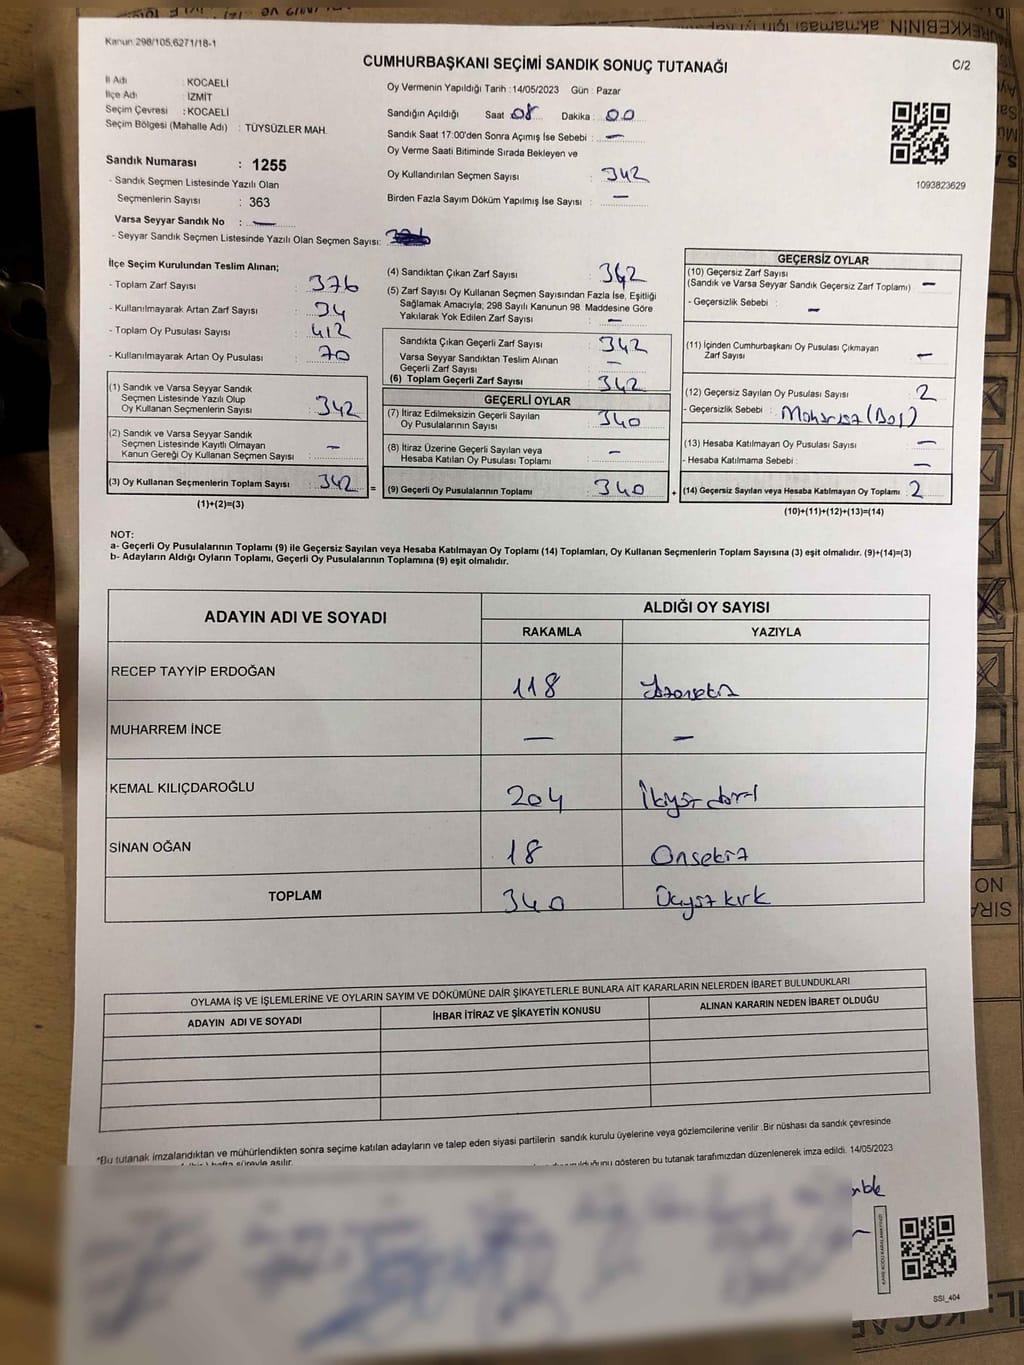 Kanun 298/105,6271/18-1
CUMHURBAŞKANI SEÇİMİ SANDIK SONUÇ TUTANAĞI
C/2
İl Adı : KOCAELİ
İlçe Adı : İZMİT
Seçim Çevresi : KOCAELİ
Seçim Bölgesi (Mahalle Adı) : TÜYSÜZLER MAH.
Sandık Numarası : 1255
- Sandık Seçmen Listesinde Yazılı Olan
Seçmenlerin Sayısı : 363
Varsa Seyyar Sandık No : —
- Seyyar Sandık Seçmen Listesinde Yazılı Olan Seçmen Sayısı:
Oy Vermenin Yapıldığı Tarih : 14/05/2023 Gün : Pazar
Sandığın Açıldığı Saat 08 Dakika : 00
Sandık Saat 17:00'den Sonra Açımış İse Sebebi : —
Oy Verme Saati Bitiminde Sırada Bekleyen ve
Oy Kullandırılan Seçmen Sayısı : 342
Birden Fazla Sayım Döküm Yapılmış İse Sayısı : —
1093823629
İlçe Seçim Kurulundan Teslim Alınan;
- Toplam Zarf Sayısı : 376
- Kullanılmayarak Artan Zarf Sayısı : 34
- Toplam Oy Pusulası Sayısı : 412
- Kullanılmayarak Artan Oy Pusulası : 70
(1) Sandık ve Varsa Seyyar Sandık
Seçmen Listesinde Yazılı Olup
Oy Kullanan Seçmenlerin Sayısı : 342
(2) Sandık ve Varsa Seyyar Sandık
Seçmen Listesinde Kayıtlı Olmayan
Kanun Gereği Oy Kullanan Seçmen Sayısı : —
(3) Oy Kullanan Seçmenlerin Toplam Sayısı : 342 =
(1)+(2)=(3)
(4) Sandıktan Çıkan Zarf Sayısı : 342
(5) Zarf Sayısı Oy Kullanan Seçmen Sayısından Fazla İse, Eşitliği
Sağlamak Amacıyla; 298 Sayılı Kanunun 98. Maddesine Göre
Yakılarak Yok Edilen Zarf Sayısı : —
Sandıkta Çıkan Geçerli Zarf Sayısı : 342
Varsa Seyyar Sandıktan Teslim Alınan
Geçerli Zarf Sayısı : —
(6) Toplam Geçerli Zarf Sayısı : 342
GEÇERLİ OYLAR
(7) İtiraz Edilmeksizin Geçerli Sayılan
Oy Pusulalarının Sayısı : 340
(8) İtiraz Üzerine Geçerli Sayılan veya
Hesaba Katılan Oy Pusulası Toplamı : —
(9) Geçerli Oy Pusulalarının Toplamı : 340 +
GEÇERSİZ OYLAR
(10) Geçersiz Zarf Sayısı
(Sandık ve Varsa Seyyar Sandık Geçersiz Zarf Toplamı) —
- Geçersizlik Sebebi : —
(11) İçinden Cumhurbaşkanı Oy Pusulası Çıkmayan
Zarf Sayısı : —
(12) Geçersiz Sayılan Oy Pusulası Sayısı : 2
- Geçersizlik Sebebi : Mühürsüz (Boş)
(13) Hesaba Katılmayan Oy Pusulası Sayısı : —
- Hesaba Katılmama Sebebi : —
(14) Geçersiz Sayılan veya Hesaba Katılmayan Oy Toplamı : 2
(10)+(11)+(12)+(13)=(14)
NOT:
a- Geçerli Oy Pusulalarının Toplamı (9) ile Geçersiz Sayılan veya Hesaba Katılmayan Oy Toplamı (14) Toplamları, Oy Kullanan Seçmenlerin Toplam Sayısına (3) eşit olmalıdır. (9)+(14)=(3)
b- Adayların Aldığı Oyların Toplamı, Geçerli Oy Pusulalarının Toplamına (9) eşit olmalıdır.
ADAYIN ADI VE SOYADI
ALDIĞI OY SAYISI
RAKAMLA YAZIYLA
RECEP TAYYİP ERDOĞAN 118 Yüzonsekiz
MUHARREM İNCE — —
KEMAL KILIÇDAROĞLU 204 İkiyüz dört
SİNAN OĞAN 18 Onsekiz
TOPLAM 340 Üçyüz kırk
OYLAMA İŞ VE İŞLEMLERİNE VE OYLARIN SAYIM VE DÖKÜMÜNE DAİR ŞİKAYETLERLE BUNLARA AİT KARARLARIN NELERDEN İBARET BULUNDUKLARI
ADAYIN ADI VE SOYADI İHBAR İTİRAZ VE ŞİKAYETİN KONUSU ALINAN KARARIN NEDEN İBARET OLDUĞU
*Bu tutanak imzalandıktan ve mühürlendikten sonra seçime katılan adayların ve talep eden siyasi partilerin sandık kurulu üyelerine veya gözlemcilerine verilir .Bir nüshası da sandık çevresinde
hafta süreyle asılır.
gösteren bu tutanak tarafımızdan düzenlenerek imza edildi. 14/05/2023
KARE KODU KARALAMAYINIZ!
SSI_404